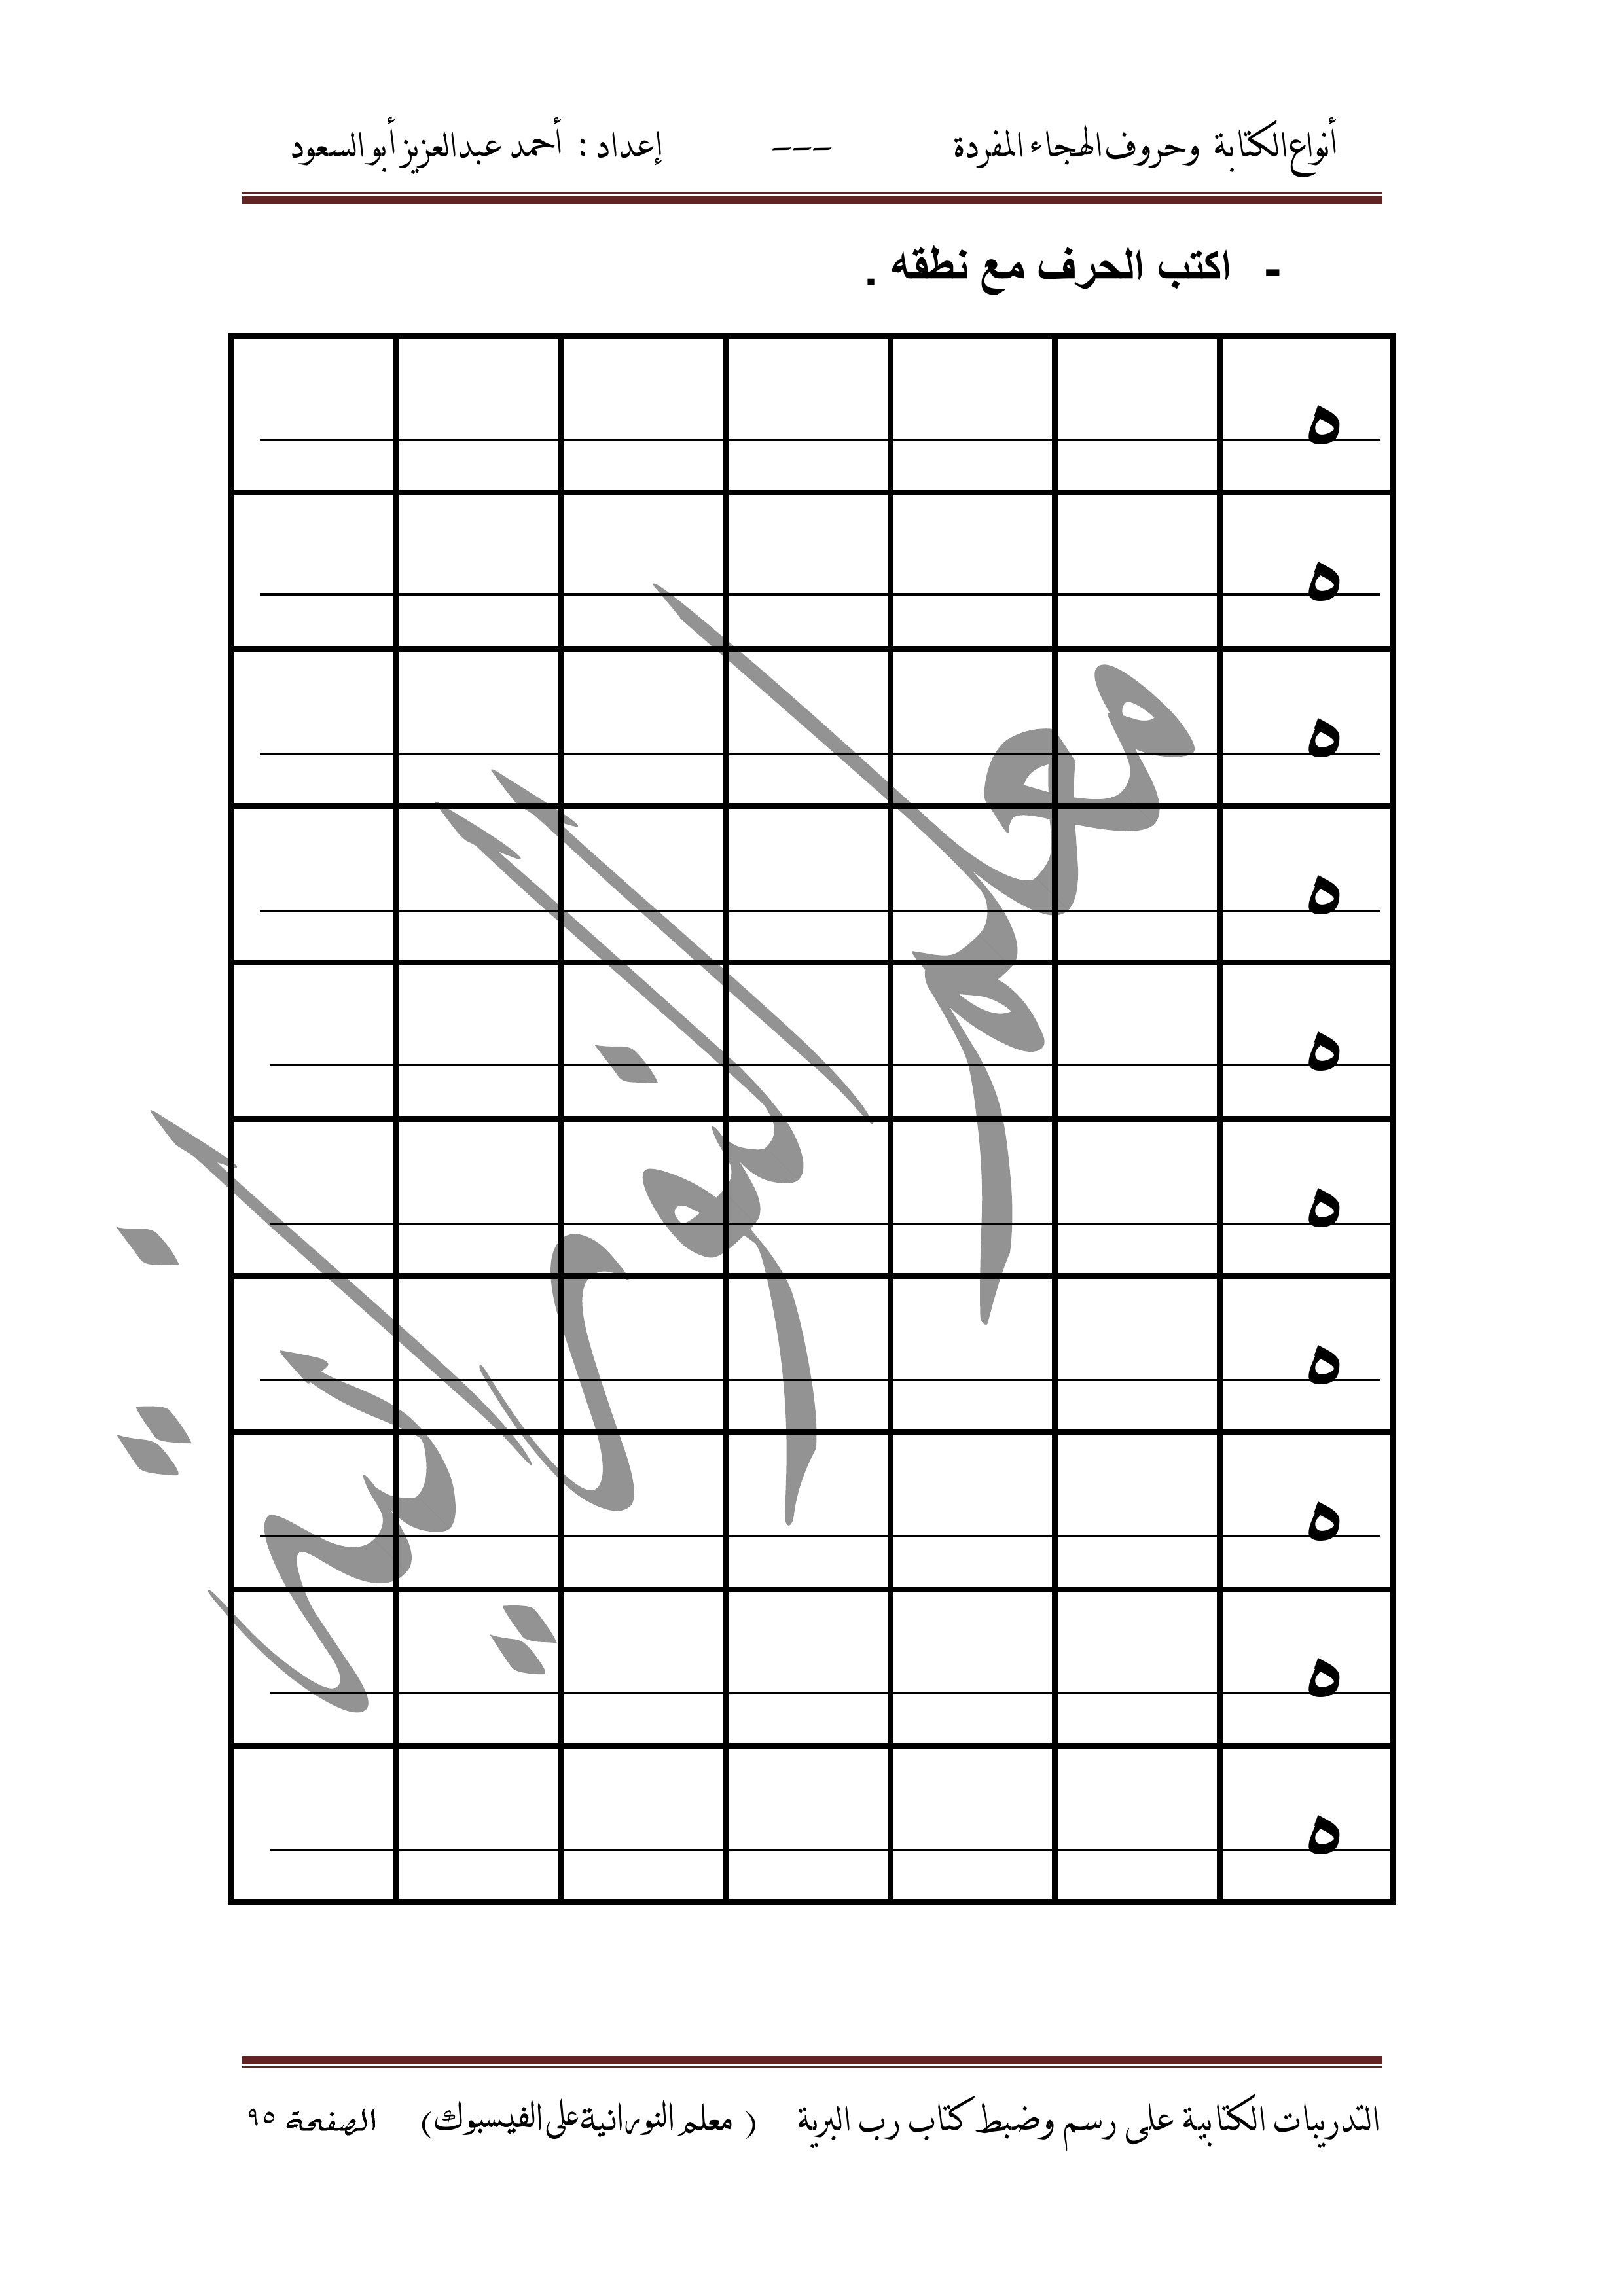 أنواع الكتابة وحروف الهجاء المفردة --- إعداد : أحمد عبدالعزيز أبو السعود
- اكتب الحرف مع نطقه .
ه
ه
ه
ه
ه
ه
ه
ه
ه
ه
معلم النورانية
التدريبات الكتابية على رسم وضبط كتاب رب البرية ( معلم النورانية على الفيسبوك) الصفحة ٩٥